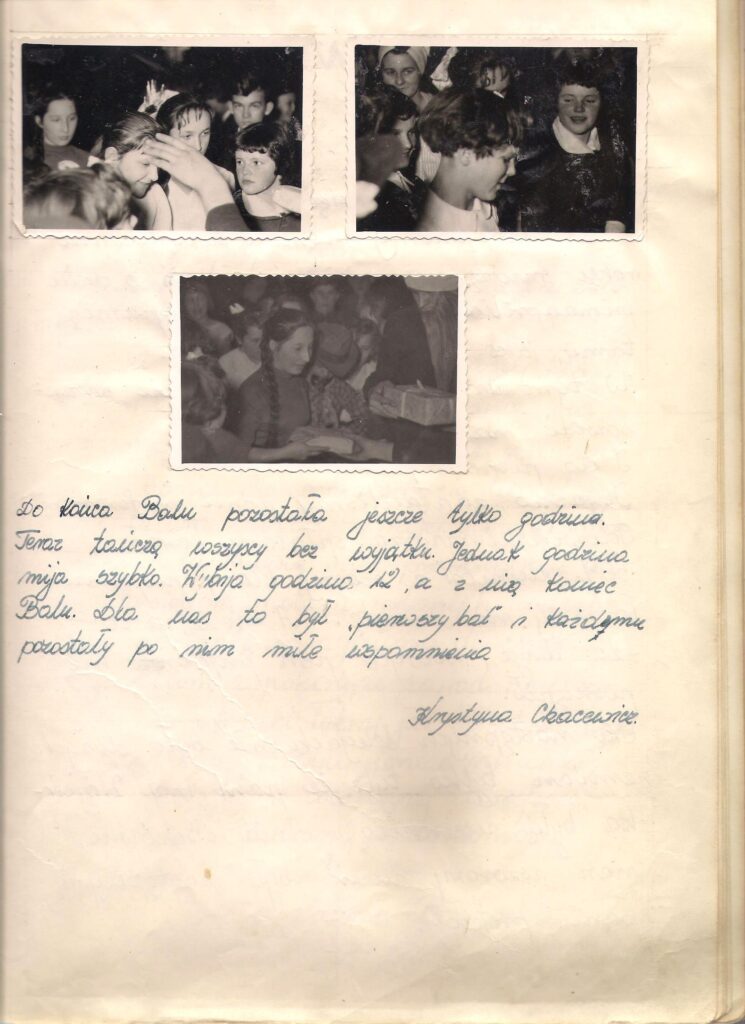 Do końca Balu pozostała jeszcze tylko godzina.
Teraz tańczą wszyscy bez wyjątku. Jednak godzina
mija szybko. Wybija godzina 12, a z nią koniec
Balu. Dla nas to był "pierwszy bal" i każdemu
pozostały po nim miłe wspomnienia
Krystyna